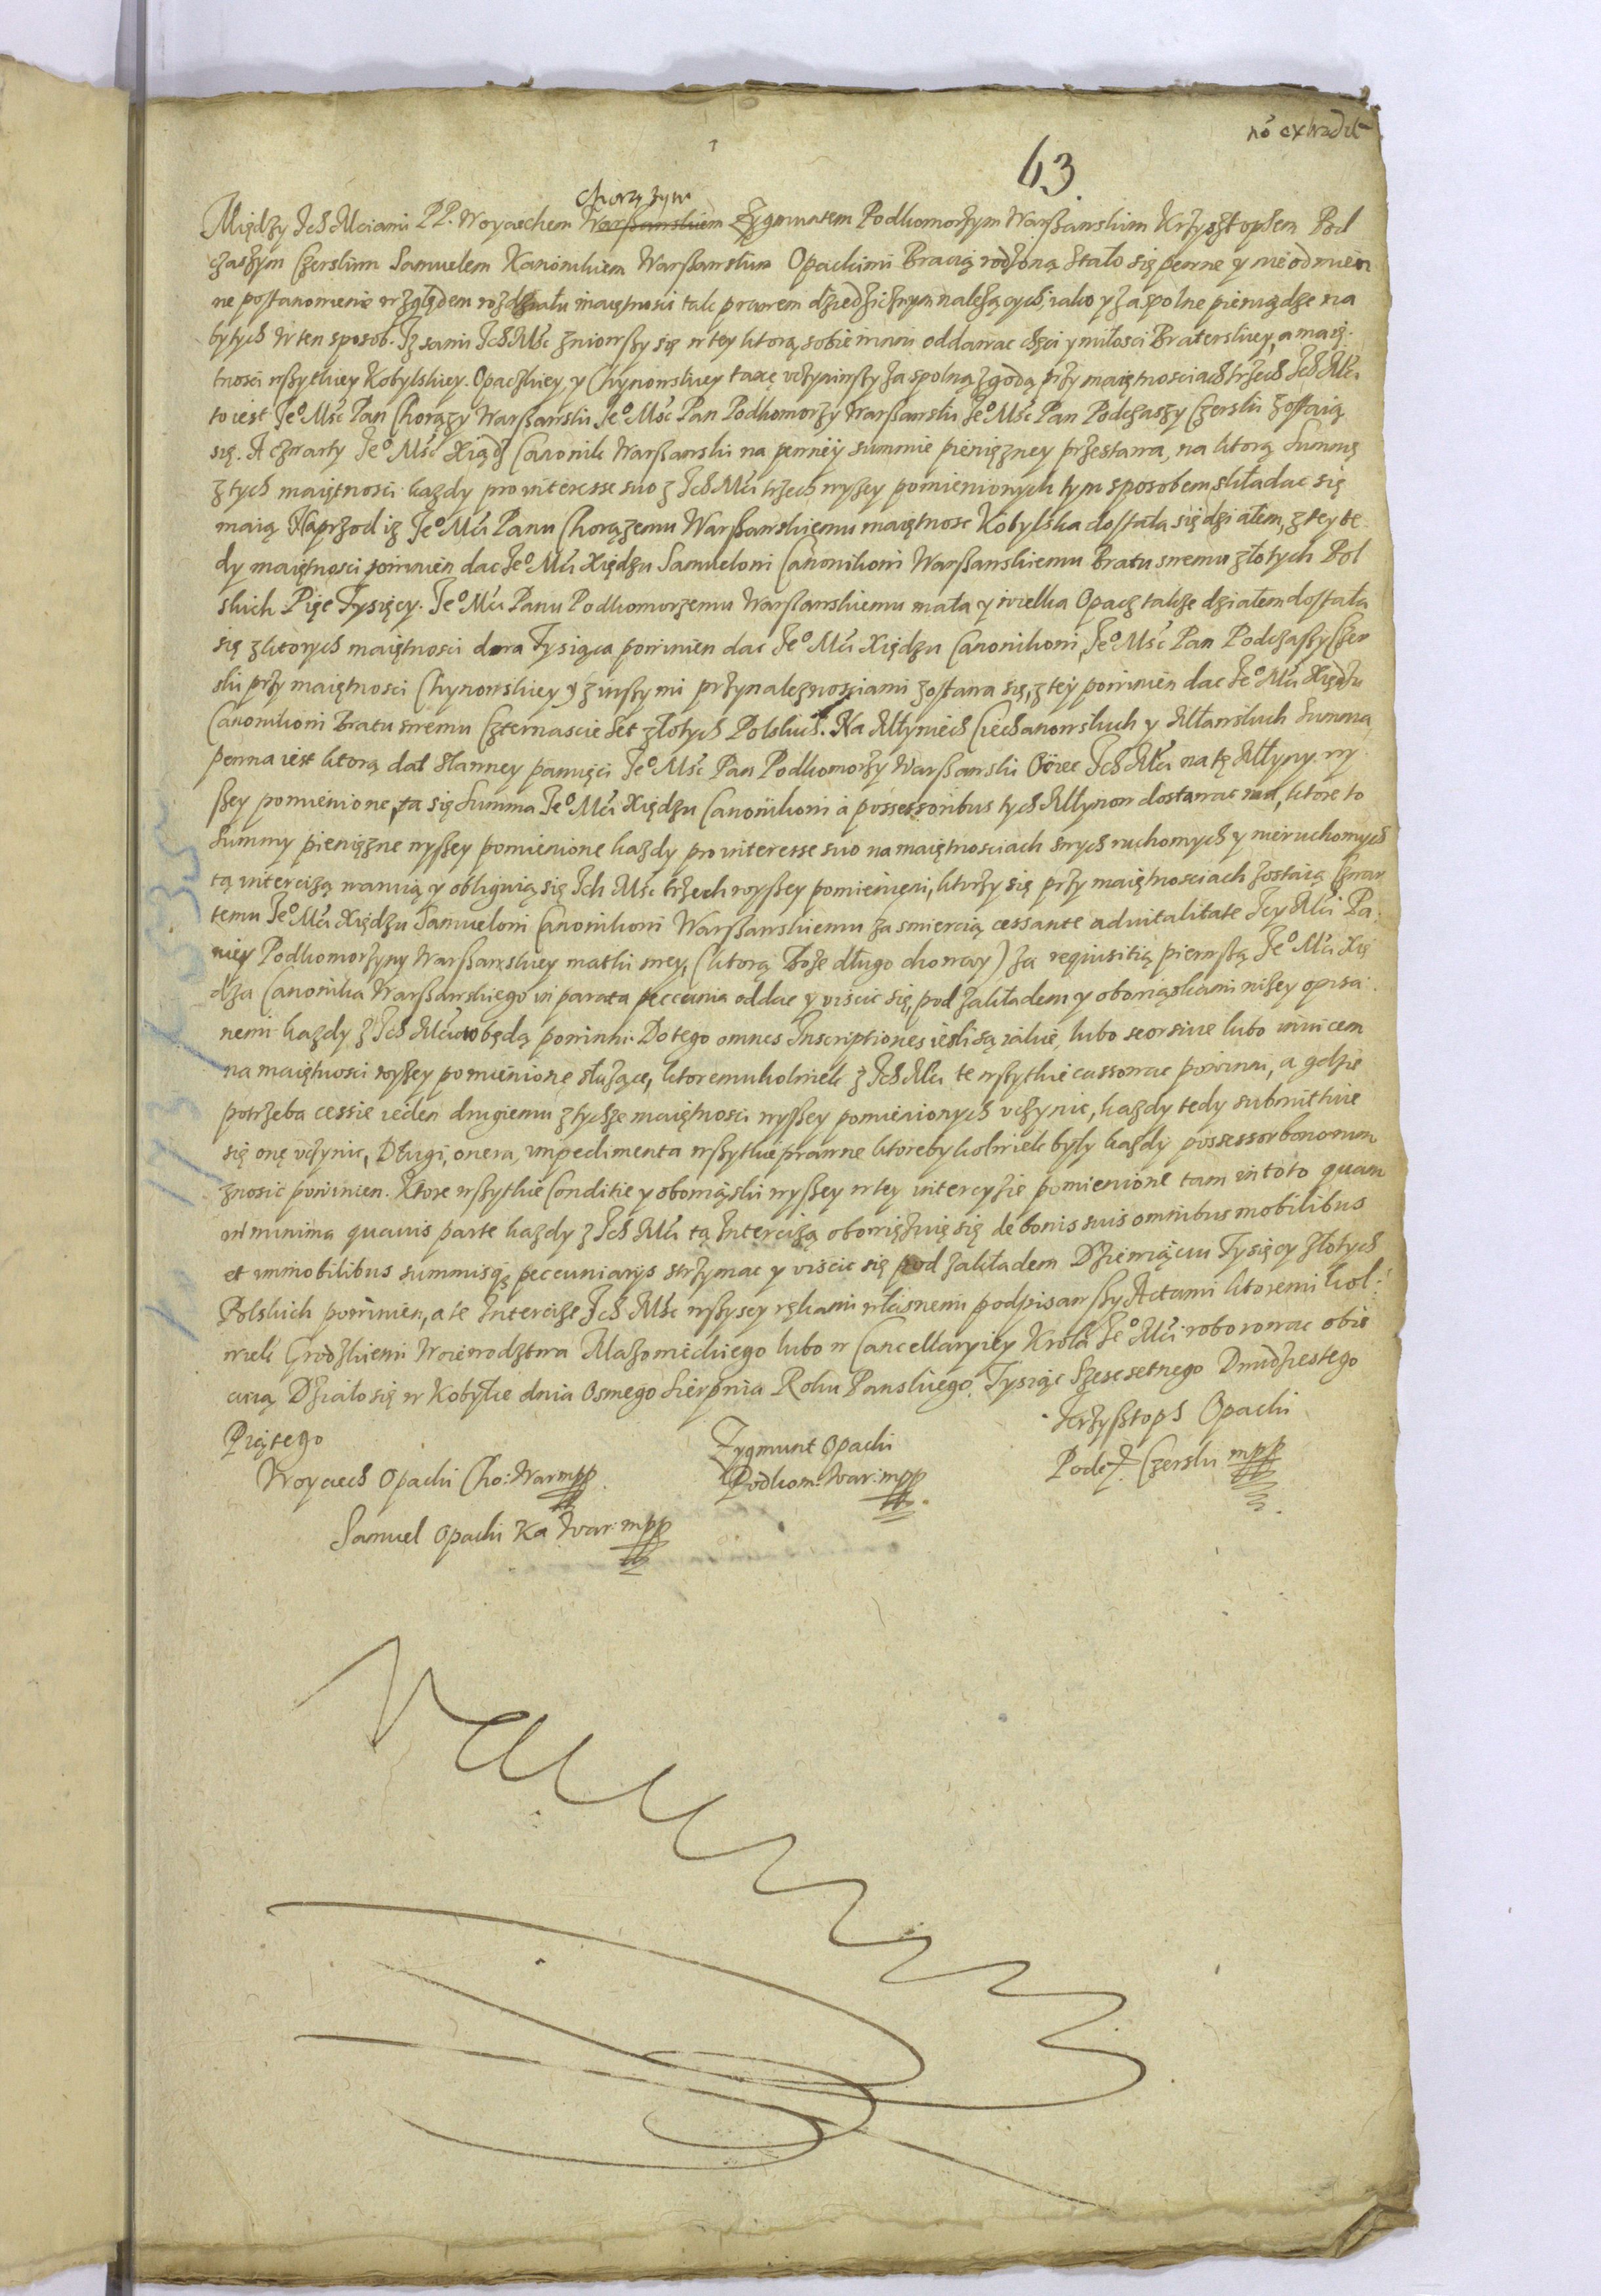 nō extradit
63.
Chorązym
Między Ich Mciami PP. Woyciechem Warßawskiem Zygmuntem Podkomorzym Warßawskim Krzysztophem Pod
czaszym Czerskim Samuelem Kanonikiem Warßawskim Opackimi Bracią rodzoną Stało się pewne y nieodmien
ne postanowienie względem rozdziału maiętnosci tak prawem dziedzicznym należących, iako y za spolne pieniądze na
bytych w ten sposob. Iz sami Ich Mśc zniowszy się w tey ktorą sobie winni oddawac chęci y miłosci Braterskiey, a maię-
tnosci wszytkiey Kobylskiey. Opackiey, y Chynowskiey taxę vczyniwszy za spolną zgodą przy maiętnosciach trzech Ich Mci
to iest Je⁰ Mśc Pan Chorązy Warßawski, Je⁰ Mśc Pan Podkomorzy Warßawski Je⁰ Mśc Pan Podczaszy Czerski zostaią
się. A czwarty Je⁰ Mśc Xiądz Canonik Warßawski na pewnẏ summie pieniężney przestawa, na ktorą Summę
z tych maiętnosci kazdy pro interesse suo z Ich Mci trzech wyßey pomienionych tym sposobem składac się
maią Naprzod iz Je⁰ Mci Panu Chorązemu Warßawskiemu maiętnosc Kobylska dostała się działem, z tey te
dy maiętnosci powinien dac Je⁰ Mci Xiędzu Samuelowi Canonikowi Warßawskiemu Bratu swemu złotych Pol
skich Pięc Tysięcy. Je⁰ Mci Panu Podkomorzemu Warßawskiemu mała y wielka Opacz takze działem dostała
się z ktorych maiętnosci dwa Tysiąca powinien dac Je⁰ Mci Xiędzu Canonikowi, Je⁰ Mśc Pan Podczaszy Czer
ski przy maiętnosci Chynowskiey y z inszymi przynaleznosciami zostawa się, z teẏ powinien dac Je⁰ Mci Xiędzu
Canonikowi Bratu swemu Czternascie Set złotych Polskich. Na Młyniech Ciechanowskich y Mławskich Summa
pewna iest ktorą dał Sławney pamięci Je⁰ Mśc Pan Podkomorzy Warßawski Ociec Ich Mci na tę Młyny wy
ßey pomienione, ta się Summa Je⁰ Mci Xiędzu Canonikowi à possessoribus tych Młynow dostawac ma, ktore to
Summy pieniężne wyßey pomienione kazdy pro interesse suo na maiętnosciach swych ruchomych y nieruchomych
tą intercizą waruią y obliguią się Ich Mśc trzech wyßey pomienieni, ktorzy się przy maiętnosciach zostaią Czwar
temu Je⁰ Mci Xiędzu Samuelowi Canonikowi Warßawskiemu za smiercią cessante aduitalitate Iey Mci Pa-
niey Podkomorzyny Warßawskiey matki swey, (ktorą Boże długo chowaẏ) za requisitią pierwszą Je⁰ Mci Xię
dza Canonika Warßawskiego in parata peccunia oddac y viścic się, pod zakładem y obowiąskami nizey opisa-
nemi kazdy z Ich Mciow będą powinni. Do tego omnes Inscriptiones iesli są iakie, lubo seorsiue lubo inuicem
na maiętnosci wyßey pomienione służące, ktoremukolwiek z Ich Mci te wszytkie cassowac powinni, a gdzie
potrzeba cessie ieden drugiemu z tychze maiętnosci wyßey pomienionych vczynic, kazdy tedy submittuie
się onę vczynic, Długi, onera, impedimenta wszytkie prawne ktoreby kolwiek były kazdy possessor bonorum
znosic powinien. Ktore wszytkie Conditie y obowiąski wyßey w tey intercyzie pomienione tam in toto quam
in minima quauis parte kazdy z Ich Mci tą Intercizą obowięzuię się de bonis suis omnibus mobilibus
et immobilibus summisq́ peccuniarijs strzymac y viścic się pod zakładem Dziewiąciu Tysięcy złotych
Polskich powinien, a te Intercize Ich Mśc wszyscy rękami własnemi podpisawszy Actami ktoremi kol-
wiek Grodzkiemi Woiewodztwa Mazowieckiego lubo w Cancellaryiey Krola Je⁰ Mci roborowac obie
cuią Działo się w Kobyłce dnia Osmego Sierpnia Roku Panskiego Tysiąc Szescsetnego Dwudziestego
Piątego
Woyciech Opacki Cho: War mpp
Zygmunt Opacki
Podkom: War: mpp
Krzysztoph Opacki
Podcz. Czerski mpp
Samuel Opacki Ka War: mpp